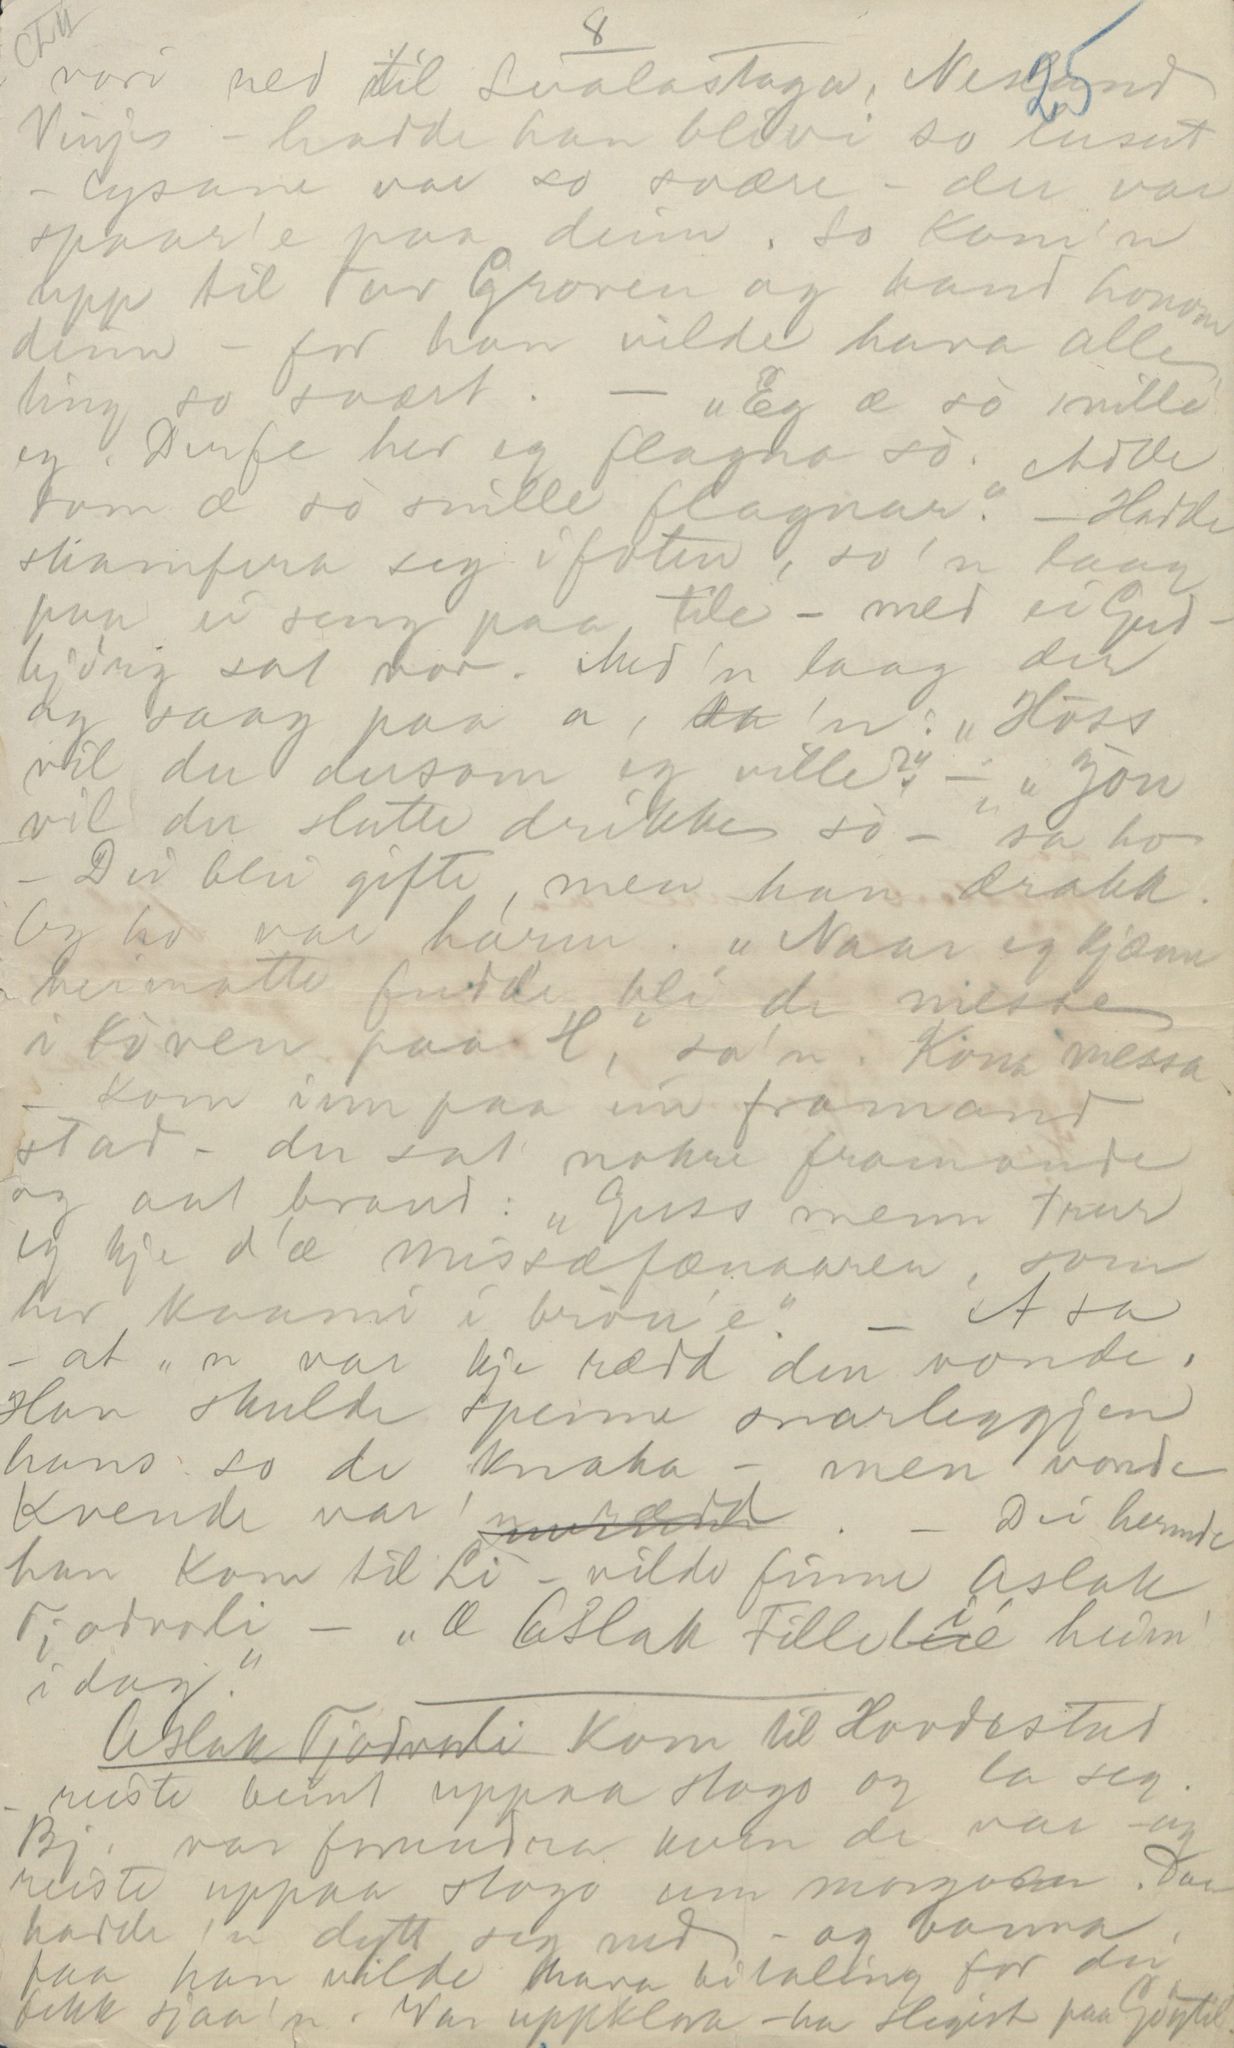 8
25
vori ned til Svalastoga, Nesland
Vinje - hadde han blivi so lusut
- lysane var so svære - der var
spaar'e paa deim. So kom'n
upp til Tov Groven og band honom
deim - for han vilde hava alle
ting so svært. - "Eg æ so snille
eg. Derfe her eg flagna so. Adle
som æ so snille flagnar." - Hadde
skamfera seg i foten, so'n laag
paa ei seng paa Tile - med ei Gud-
bjørig sat vor. Med'n laag der
og saag paa a, sa'n: "Høss
vil du dersom eg ville?" - "Jøn
vil du slutte drikke so -" sa ho
- Dei blei gifte, men han drakk.
Og ho var harm. "Naar eg kjæm
heimatte fudde, bli de messe
i Kòven paa H," sa'n. Kona messa
- Kom inn paa ein framand
stad - der sat nokre framande
og aat braud: "Guss menn trur
eg kje d'æ missæfænaaren, som
her kaami i brøu'e." - A sa
- at "n var kje rædd den vonde.
Han skulde speinne snarleggjen
hans so de knaka - men vonde
Kvende var'n urædd. - Dei herende
han kom til Li - vilde finne Aslak
Tjodvoli - "Æ Aslak Fillelie heim'
i dag."
Aslak Tjodvoli kom til Hovdestad
- reiste beint uppaa stogo og la seg.
Bj. var forundra kven de var - og
reiste uppaa stogo um morgonen. Daa
hadde 'n dytt seg ned - og banna,
paa han vilde hava bitaling for dei
fekk sjaa'n. Var uppklora - ha slegist paa Gøytil